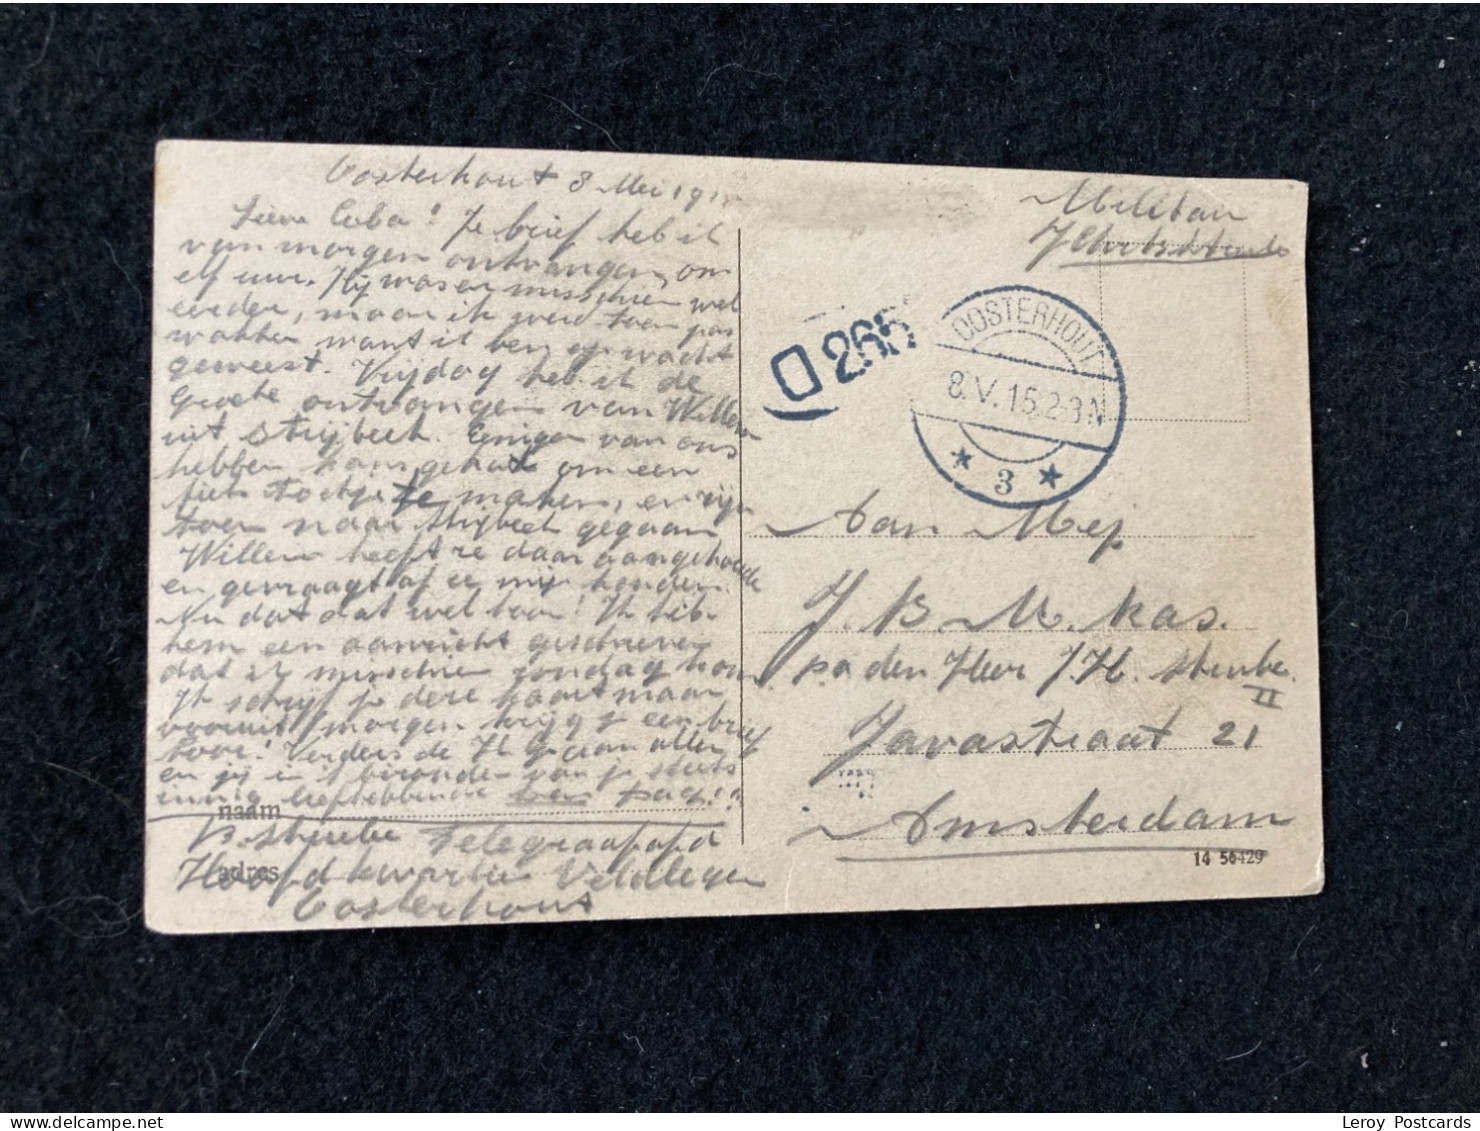 Oosterhout 8 Mei 191
Lieve Coba! Je brief heb ik
van morgen ontvangen, om
elf uur. Hij was er misschien wel
eerder, maar ik werd toen pas
wakker want ik ben op wacht
geweest. Vrijdag heb ik de
Groete ontvangen van Willem
uit Strijbeek. Eenigen van ons
hebben kans gehad om een
fiets tochtje te maken, en zijn
toen naar Strijbeek gegaan
Willem heeft ze daar aangehoude
en gevraagt of ze mij kenden.
Nu dat dat wel hoor! Ik heb
hem een aanzicht geschreven
dat ik misschien zondag kom.
Ik schrijf je deze kaart maar
vooruit, morgen krijg je een brief
hoor! Verders de H G aan allen
en jij in 't bizonder van je steeds
innig liefhebbende
naam
B. Sterube Telegraaf afd
adres
Hoofdkwartier Veldleger
Oosterhout
Militair
D 265
OOSTERHOUT
8.V.15.2-3N
3
Aan Mej
J. B. M. Kas.
p a den Heer J. H.
II
Javastraat 21
Amsterdam
14 56429
Leroy Postcards